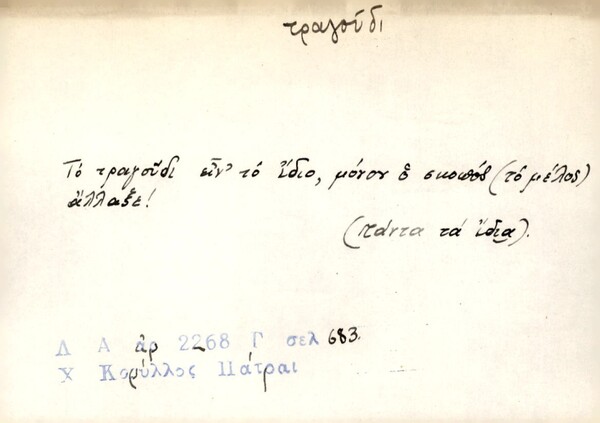 τραγούδι
Τό τραγοῦδι εἶν' τό ἴδιο, μόνον ὁ σκοπός (τό μέλος)
ἄλλαξε!
(πάντα τά ἴδια).
Λ Α ἀρ 2268 Γ σελ 683.
Χ Κορύλλος Πάτραι